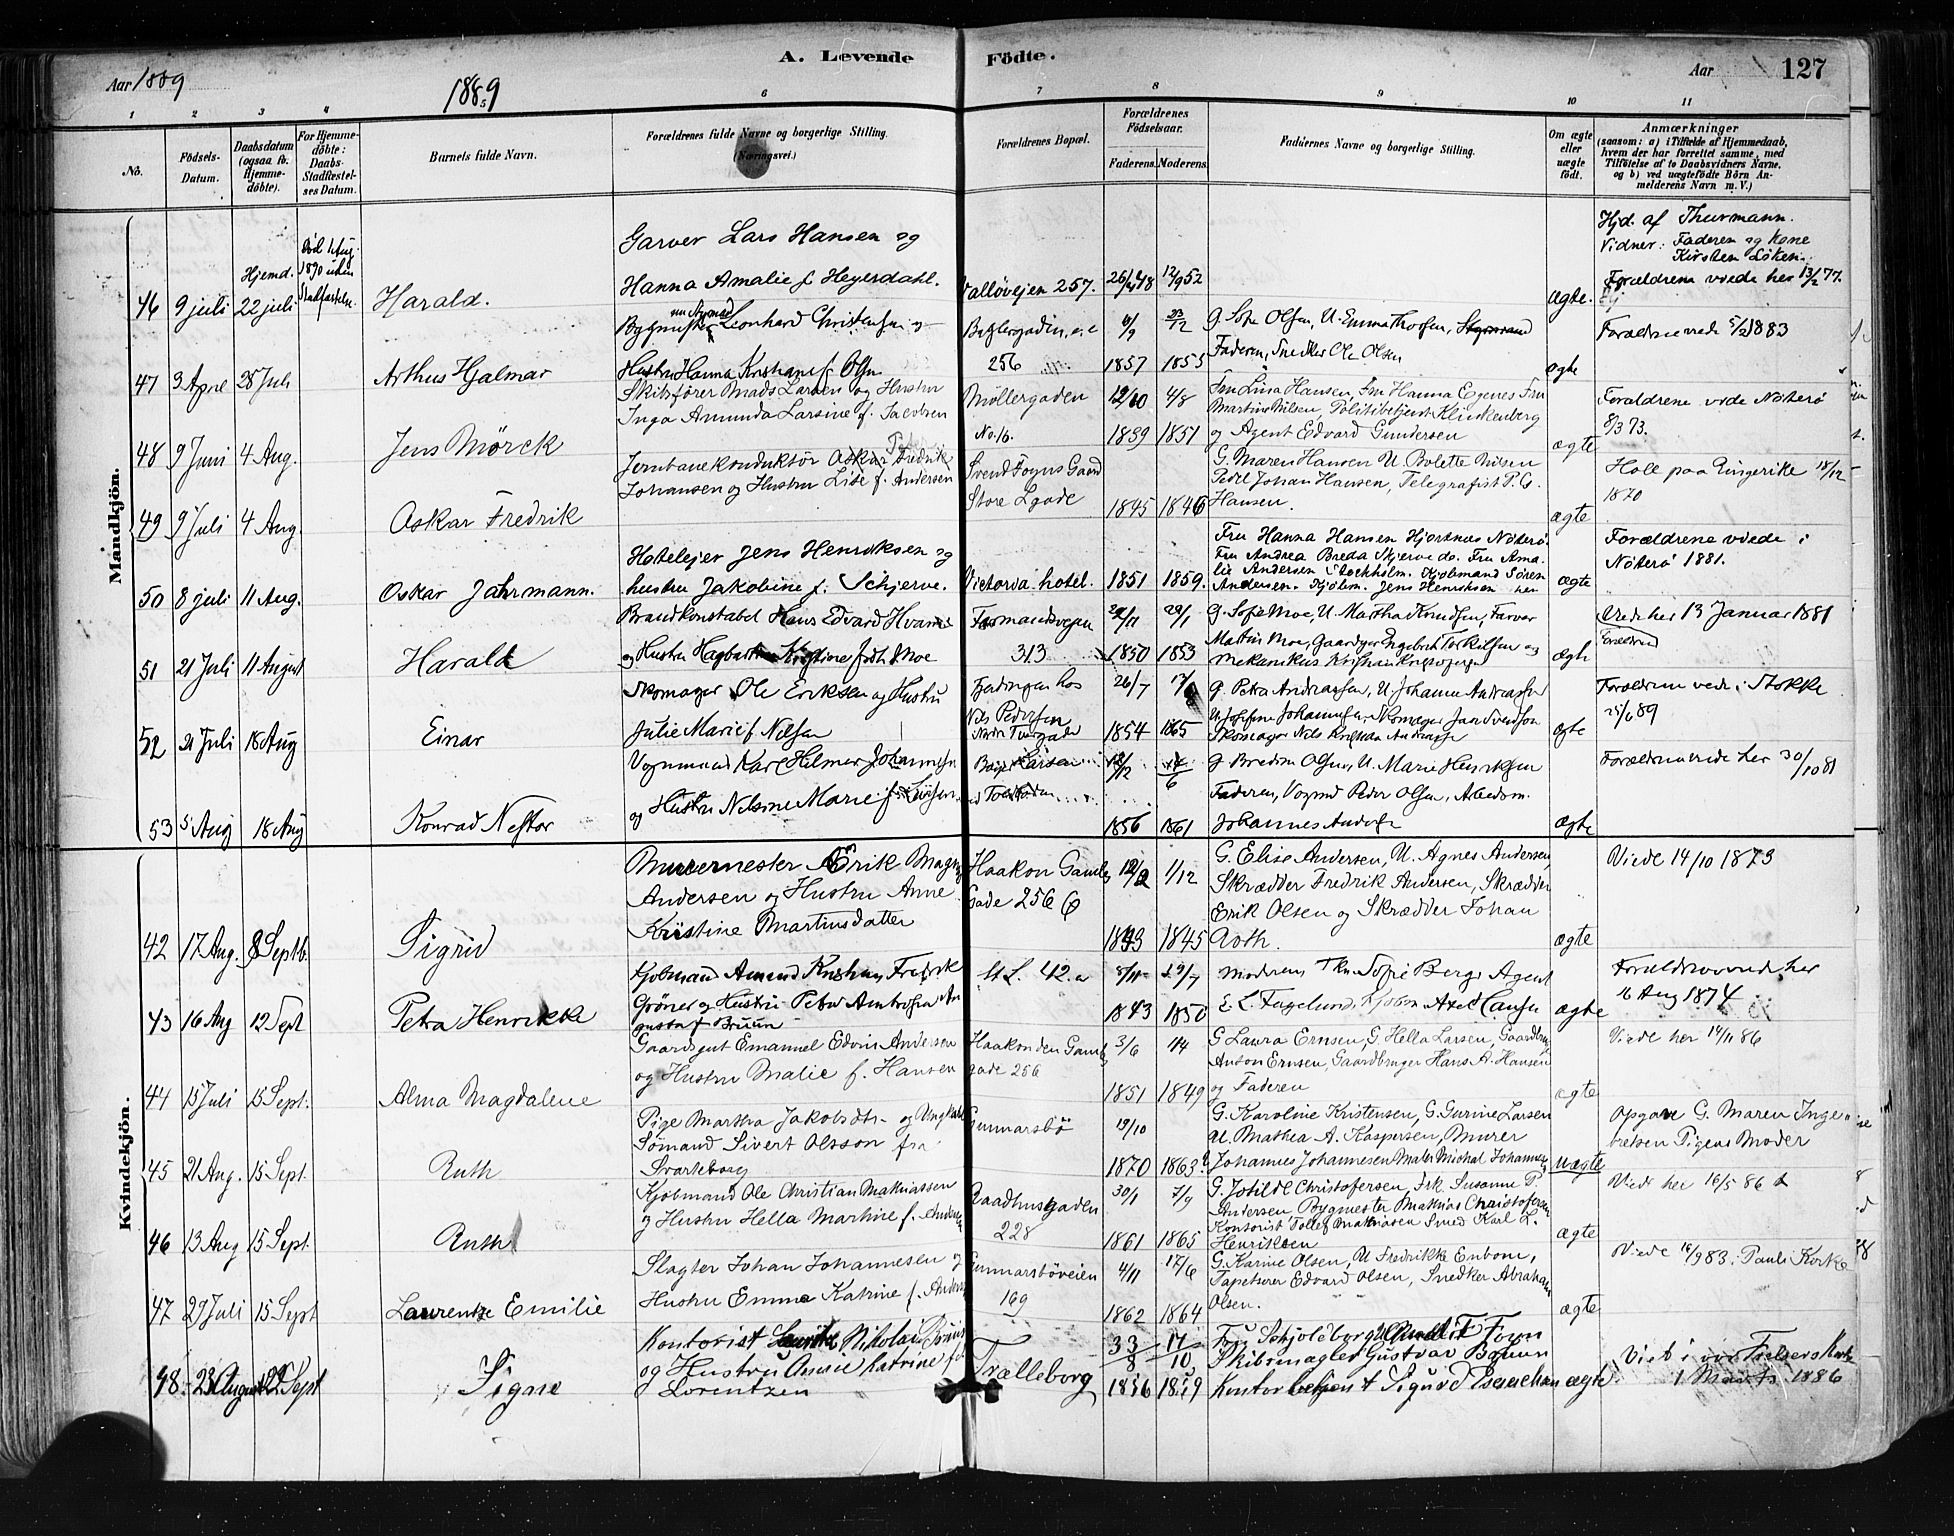 Aar 1889
1889
A. Levende
Födte.
Aar
127
1
2
3
4
6
7
8
9
10
11
No.
Födsels-
Datum.
Daabsdatum
(ogsaa for
Hjemme-
döbte).
For Hjemme-
döbte:
Daabs-
Stadfæstel-
ses Datum.
Barnets fulde Navn.
Forældrenes fulde Navne og borgerlige Stilling.
(Næringsvei.)
Forældrenes Bopæl.
Forældrenes
Födselsaar.
Faderens.
Moderens.
Faddernes Navne og borgerlige Stilling.
Om ægte
eller
uægte
födt.
Anmærkninger
(saasom: a) i Tilfælde af Hjemmedaab,
hvem der har forrettet samme, med
Tilföielse af to Daabsvidners Navne,
og b) ved uægtefödte Börn An-
melderens Navn m. V.)
Mandkjön.
46 9 juli Hjemd. 22 juli
Død 1 Aug. 1890 uden Stadfæstelse
Harald.
Garver Lars Hansen og
Hanna Amalie f. Heyerdahl.
Valløvejen 257.
26/4 48 12/9 52
ægte.
Hjd. af Thurmann.
Vidner: Faderen og Kone
Kirsten Løken.
Forældrene viede her 13/2 77.
47 3 April 28 Juli
Arthur Hjalmar
Bygmester Leonhard Christensen og
Hustru Hanna Kristiane f. Olsen
256
1857 1855
G. Sofie Olsen, U. Emma Thorsen,
Faderen, Snedker Ole Olsen
ægte
Forældrene viede 5/2 1883
48 9 Juni 4 Aug.
Jens Mörck
Skibsfører Mads Larsen og Hustru
Inga Amunda Larsine f. Jacobsen
Møllergaden
No. 16.
12/10 4/8
1839 1851
Fru Lina Hansen, Fru Hanna Egenes Fru
Martine Nilsen, Politibetjent Klinkenberg
og Agent Edvard Gundersen
ægte
Forældrene viede Nøterø
8/3 73.
49 9 Juli 4 Aug.
Oskar Fredrik
Jernbanekonduktør Oskar Fredrik
Johansen og Hustru Lise f. Andersen
Svend Foyns Gaard
Store Lgade
1845 1846
G. Maren Hansen U. Bolette Nilsen
Pedel Johan Hansen, Telegrafist P. C.
Hansen.
ægte
Hole paa Ringerike 18/12
1870
50 8 juli 11 Aug.
Oskar Jahrmann.
Hotelejer Jens Henriksen og
hustru Jakobine f. Schjerve.
Victoria hotel.
1851 1859.
Fru Hanna Hansen Hjortnes Nøterø.
Fru Andrea Breda Skjerve do. Fru Ama-
lie Andersen Stockholm. Kjøbmand Søren
Andersen. Kjøbm. Jens Henriksen
ægte
Forældrene viede i
Nøterø 1881.
51 21 Juli 11 August
Harald
Brandkonstabel Hans Edvard Hvarnes
og Hustru Kristine født Moe
Formandsvejen
313
1850 1853
G. Sofie Moe, U. Martha Knudsen, Farver
ægte
Viede her 13 Januar 1881
Forældrene
52 21 Juli 18 Aug
Einar
Skomager Ole Eriksen og Hustru
Julie Marie f. Nilsen
Nils Pedersen
26/7
1854 1865
G. Petra Andreassen, U. Johanne Andreassen
ægte
Forældrene viede i Stokke
25/6 89
53 5 Aug 18 Aug
Konrad Nestor
Vognmand Karl Hilmar Johannesen
og Hustru Nilsine Marie f. Larsen
1856 1861
G. Bredine Olsen, U. Marie Henriksen
Faderen, Vognmd Peder Olsen, Arbedsm.
Johannes Andersen
ægte
Forældrene viede her 30/10 81
Kvindekjön.
42 17 Aug. 8 Septb.
Sigrid
Murermester Erik Magnus
Andersen og Hustru Anne
Kristine Martinsdatter
Haakon Gamles
Gade 256 C
12/2 1/12
1843 1845
G. Elise Andersen, U. Agnes Andersen
Skrædder Fredrik Andersen, Skrædder
Erik Olsen og Skrædder Johan
Roth.
ægte
Viede 14/10 1873
43 16 Aug 12 Sept
Petra Henrikke
Kjøbmand Amund Kristian Fredrik
Grøner og Hustru Petra Ambrosia Au-
gusta f Bruun
M. L. 42. a
8/11 29/7
1843 1850
Moderen Frk. Sofie Berg Agent
E. L. Fagelund, Kjøbm Axel Hansen
ægte
Forældrene viede her
16 Aug 1874
44 15 Juli 15 Sept.
Alma Magdalene
Gaardsgut Emanuel Edvin Andersen
og Hustru Malie f. Hansen
Haakon den Gamles
gade 256
3/6 4/4
1851 1849
G Laura Ernsen, G. Hella Larsen, Gaardbrug.
Anton Ernsen, Gaardbruger Hans A. Hansen
og Faderen
ægte
Viede her 14/11 86
45 21 Aug. 15 Sept.
Ruth
Pige Martha Jakobsdtr. og Ungkarl
Sømand Sivert Olsson fra
Svarteborg
Gunnarsbø
19/10
1870 1863?
G. Karoline Kristensen, G. Gurine Larsen
U. Mathea A. Kaspersen, Murer
Johannes Johannesen Maler Michal Johannesen
uægte
Opgave G. Maren Inge-
bretsen Pigens Moder
46 13 Aug 15 Sept.
Ruth
Kjøbmand Ole Christian Mathiassen
og Hustru Hella Martine f. Andersen
Raadhusgaden
228
30/1 7/9
1861 1865
G. Jotilde Christofersen, Frk. Susanne P.
Andersen Bygmester Mathias Christofersen
Kontorist Tollef Mathiasen Smed Karl L.
Henriksen
ægte
Viede her 16/5 86
47 29 Juli 15 Sept
Laurentze Emilie
Slagter Johan Johannesen og
Hustru Emma Katrine f. Anders
Gunnarsbøveien
169
4/11 17/6
1862 1864
G. Karine Olsen, U Fredrikke Enbom,
Tapetserer Edvard Olsen, Snedker Abraham
Olsen.
ægte
Viede 16/9 83 i Pauli Kirke
48. 23 August 22 Sept
Signe
Kontorist Nikolai Bruun
og Hustru Anna Katrine f.
Lorentzen
Trælleborg
17/10
1856 1859
Skibsmægler Gustvav Bruun
Kontorbetjent Sigurd Isaachsen
ægte
Viet i vor Frelsers Kirke
1 Marts 1886